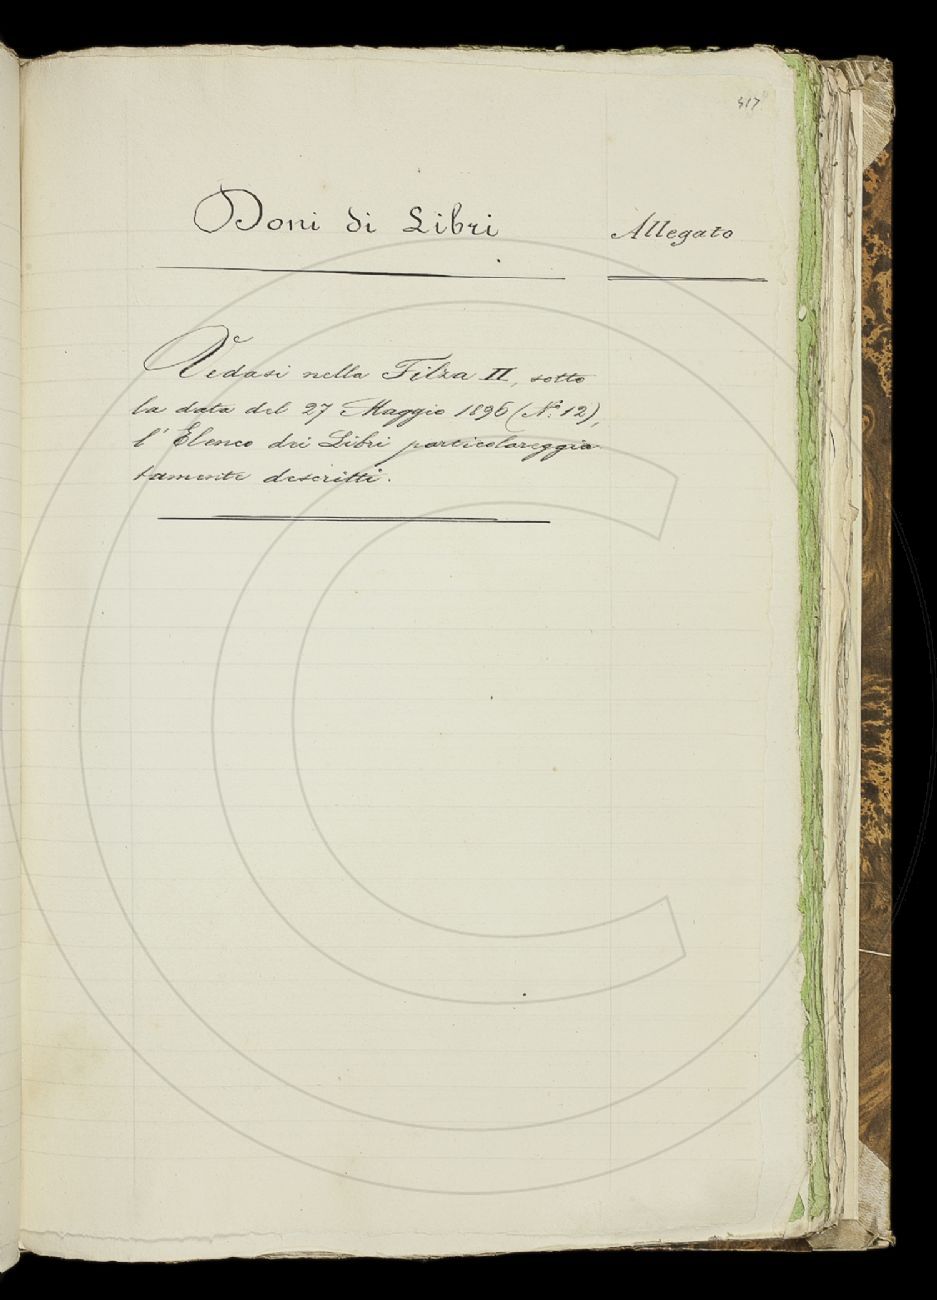 517
Doni di Libri
Allegato
Vedasi nella Filza II, sotto
la data del 27 Maggio 1896 (N.° 12),
l'Elenco dei Libri particolareggia-
tamente descritti.